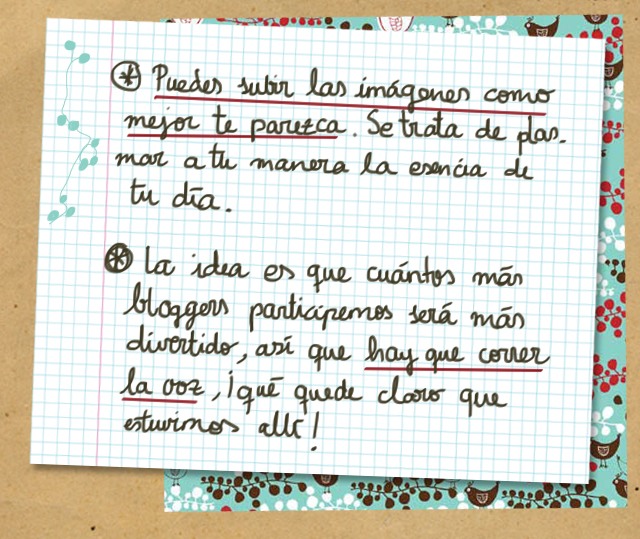 * Puedes subir las imágenes como
mejor te parezca. Se trata de plas-
mar a tu manera la esencia de
tu día.
* La idea es que cuántos más
bloggers participemos será más
divertido, así que hay que correr
la voz, ¡qué quede claro que
estuvimos allí!